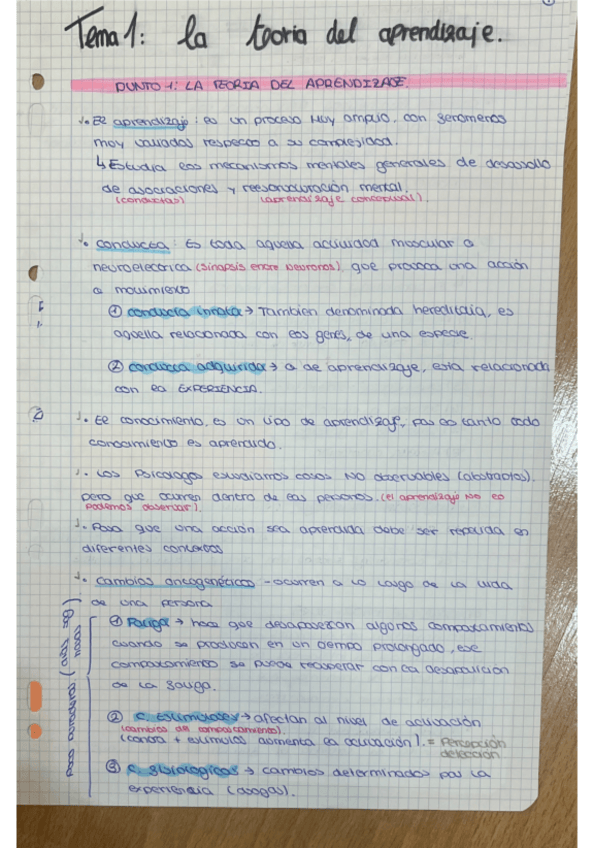 Tema 1: la teoria del aprendizaje.
PUNTO 1: LA TEORIA DEL APRENDIZAJE.
El aprendizaje: es un proceso muy amplio, con fenomenos
muy variados respecto a su complejidad.
↳ Estudia los mecanismos mentales generales de desarollo
de asociaciones y reestructuración mental.
(conductas) (aprendizaje conceptual)
conducta: Es toda aquella actividad muscular o
neuroelectrica (sinapsis entre neuronas) que provoca una acción
o movimiento
① conducta innata → Tambien denominada hereditaria, es
aquella relacionada con los genes, de una especie.
② conducta adquirida → o de aprendizaje, esta relacionada
con la EXPERIENCIA.
El conocimiento, es un tipo de aprendizaje, por lo tanto todo
conocimiento es aprendido.
Los Psicologos estudiamos cosas NO observables (abstractas),
pero que ocurren dentro de las personas. (el aprendizaje NO lo
podemos observar).
Para que una acción sea aprendida debe ser repetida en
diferentes contextos
Cambios ontogenéticos - ocurren a lo largo de la vida
de una persona
① Fatiga → hace que desaparezcan algunos comportamientos
cuando se producen en un tiempo prolongado, ese
comportamiento se puede recuperar con la desaparición
de la fatiga.
② C. Estimulares → afectan al nivel de activación
(cambios de comportamiento).
(conducta + estimulos aumenta la activación). = Percepción
detección
③ C. fisiologicos → cambios determinados por la
experiencia (drogas).